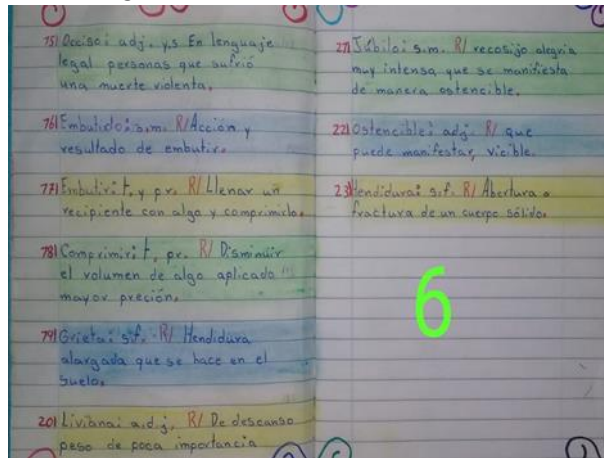 75) Occiso: adj. y,s En lenguaje
legal personas que sufrió
una muerte violenta.
76) Embutido: s.m. R/ Acción y
resultado de embutir.
77) Embutir: t, y pr. R/ Llenar un
recipiente con algo y comprimirlo.
78) Comprimir: t, pr. R/ Disminuir
el volumen de algo aplicado
mayor preción.
79) Grieta: s.f. R/ Hendidura
alargada que se hace en el
suelo.
201 Liviana: a.d.j. R/ De descanso
peso de poca importancia
271 Júbilo: s.m. R/ recosijo alegria
muy intensa que se manifiesta
de manera ostencible.
221 Ostencible: adj. R/ que
puede manifestar, vicible.
231 Hendidura: s.f. R/ Abertura o
fractura de un cuerpo sólido.
6